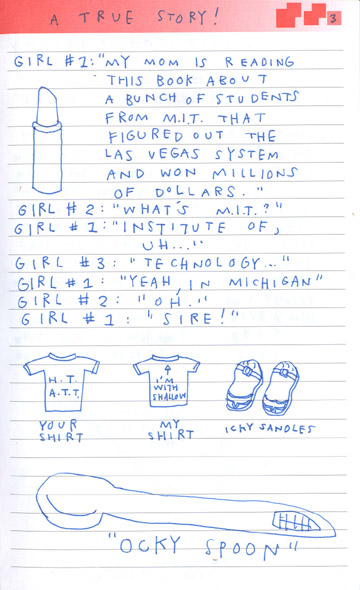 A TRUE STORY!
3
GIRL #1: "MY MOM IS READING
THIS BOOK ABOUT
A BUNCH OF STUDENTS
FROM M.I.T. THAT
FIGURED OUT THE
LAS VEGAS SYSTEM
AND WON MILLIONS
OF DOLLARS."
GIRL #2: "WHAT'S M.I.T.?"
GIRL #1: "INSTITUTE OF,
UH..."
GIRL #3: "TECHNOLOGY..."
GIRL #1: "YEAH, IN MICHIGAN"
GIRL #2: "OH."
GIRL #1: "SIRE!"
H.T.
A.T.T.
I'M
WITH
SHALLOW
YOUR
SHIRT
MY
SHIRT
ICKY SANDLES
"OCKY SPOON"